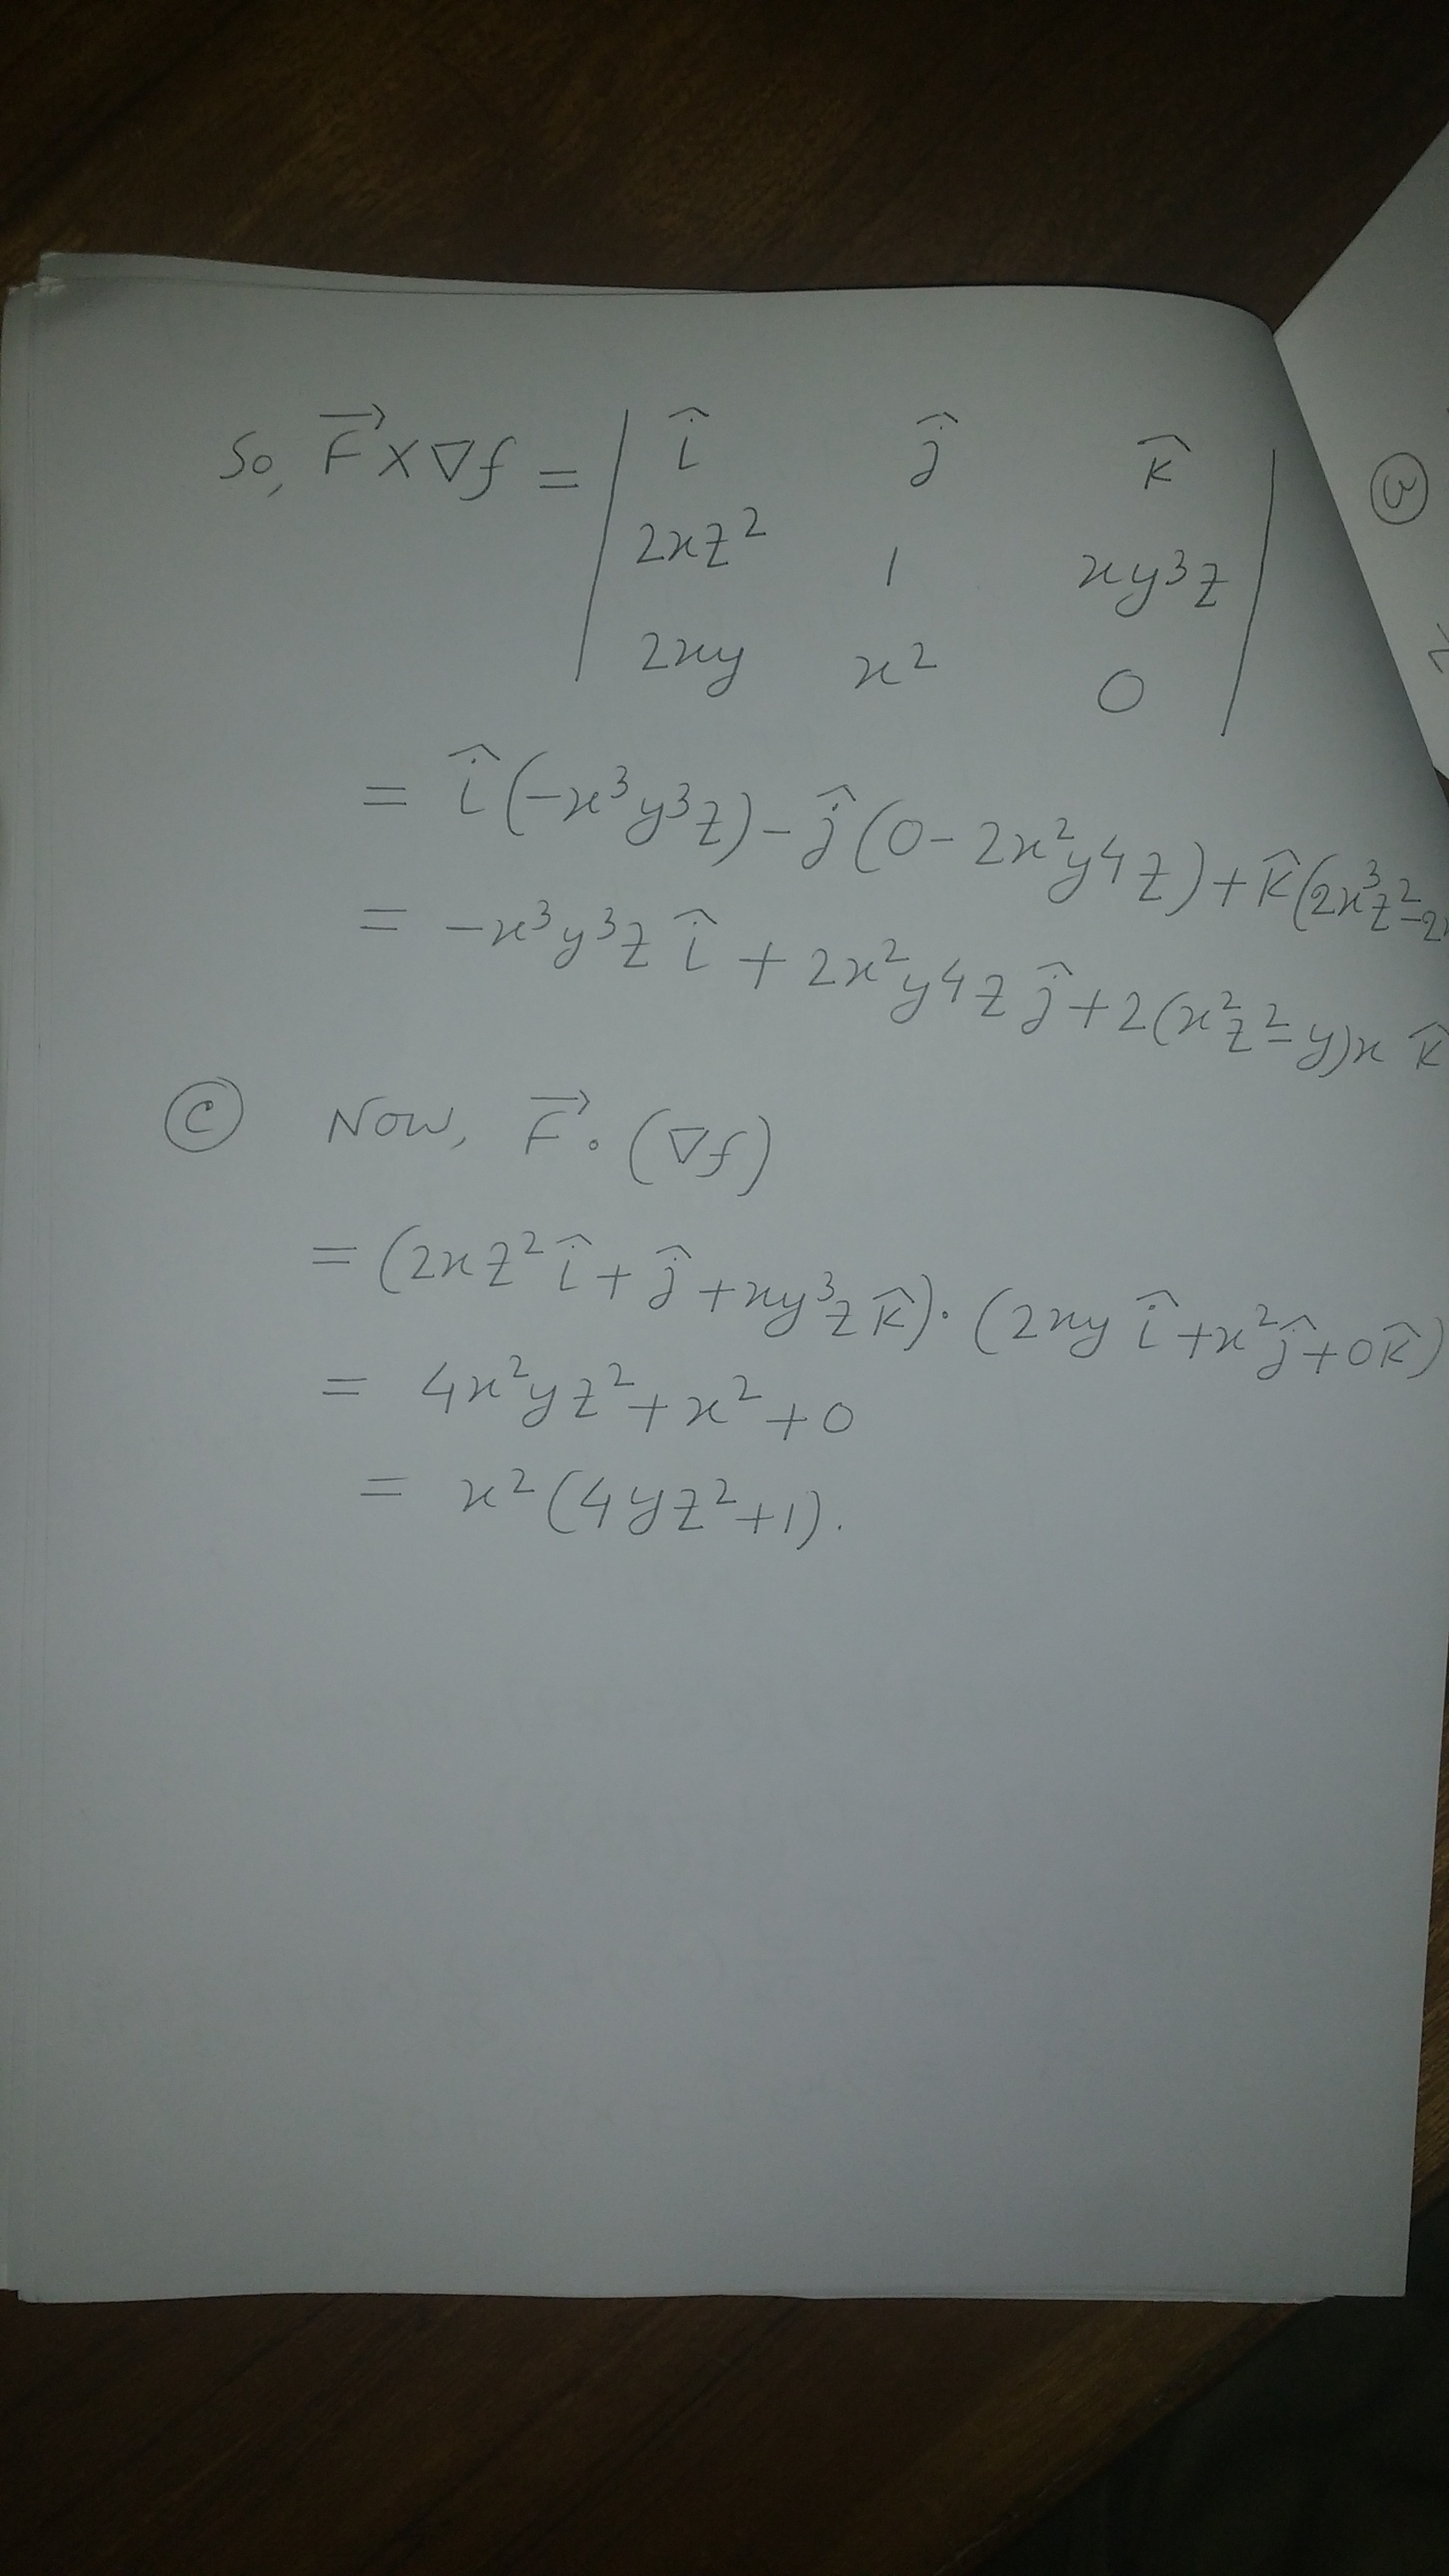 So, F⃗ × ∇f = | î ĵ k̂ |
| 2xz² 1 xy³z |
| 2xy x² 0 |
= î(-x³y³z) - ĵ(0 - 2x²y⁴z) + k̂(2x³z² - 2
= -x³y³z î + 2x²y⁴z ĵ + 2(x²z² - y)x k̂
ⓒ Now, F⃗ . (∇f)
= (2xz² î + ĵ + xy³z k̂) . (2xy î + x² ĵ + 0k̂)
= 4x²yz² + x² + 0
= x²(4yz² + 1).